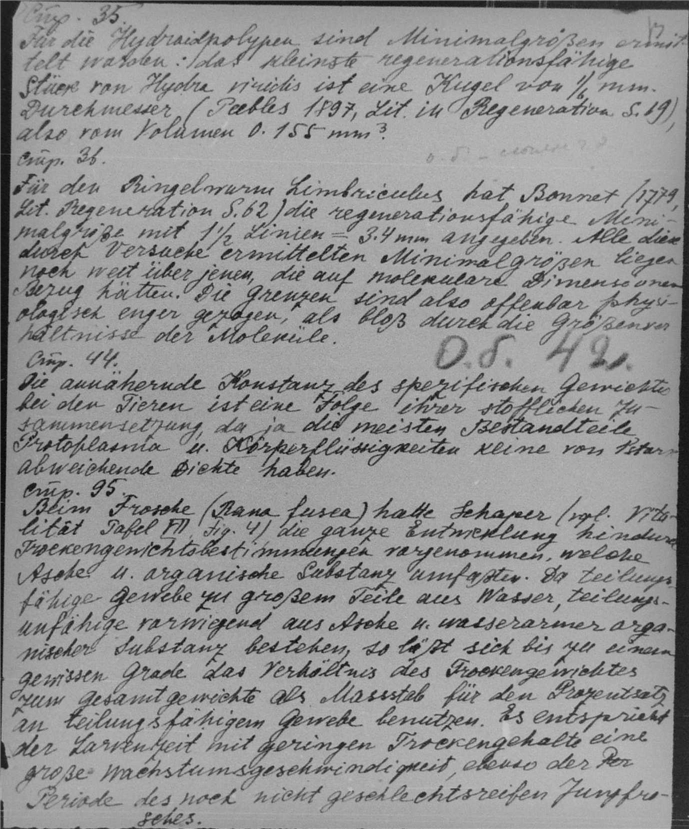 Стр. 35.
Für die Hydroidpolypen sind Minimalgrößen ermit-
telt worden: das kleinste regenerationsfähige
Stück von Hydra viridis ist eine Kugel von 1/6 mm.
Durchmesser (Peebles 1897, Lit. in Regeneration S. 19),
also vom Volumen 0.155 mm³.
Стр. 36.
Für den Ringelwurm Limbriculus hat Bonnet (1779,
Lit. Regeneration S. 62) die regenerationsfähige Mini-
malgröße mit 1 1/2 Linien = 3.4 mm angegeben. Alle diese
durch Versuche ermittelten Minimalgrößen liegen
noch weit über jenen, die auf molekulare Dimensionen
Bezug hätten. Die Grenzen sind also offenbar physi-
ologisch enger gezogen, als bloß durch die Größenver
hältnisse der Moleküle.
О.б. 42.
Стр. 44.
Die annähernde Konstanz des spezifischen Gewichts
bei den Tieren ist eine Folge ihrer stofflichen Zu-
sammensetzung da ja die meisten Bestandteile
Protoplasma u. Körperflüssigkeiten keine von
abweichende Dichte haben.
Стр. 95.
Beim Frosche (Rana fusca) hatte Schaper (vgl. Vita-
lität Tafel VII Fig. 4) die ganze Entwicklung hindurch
Trockengewichtsbestimmungen vorgenommen, welche
Asche u. organische Substanz umfaßten. Da teilungs-
fähige Gewebe zu großem Teile aus Wasser, teilungs-
unfähige vorwiegend aus Asche u. wasserarmer orga-
nischer Substanz bestehen, so läßt sich bis zu einem
gewissen Grade das Verhältnis des Trockengewichtes
zum Gesamtgewichte als Massstab für den Prozentsatz
an teilungsfähigem Gewebe benutzen. Es entspricht
der Larvenzeit mit geringen Trockengehalte eine
große Wachstumsgeschwindigkeit, ebenso der Per
Periode des noch nicht geschlechtsreifen Jungfro-
sches.